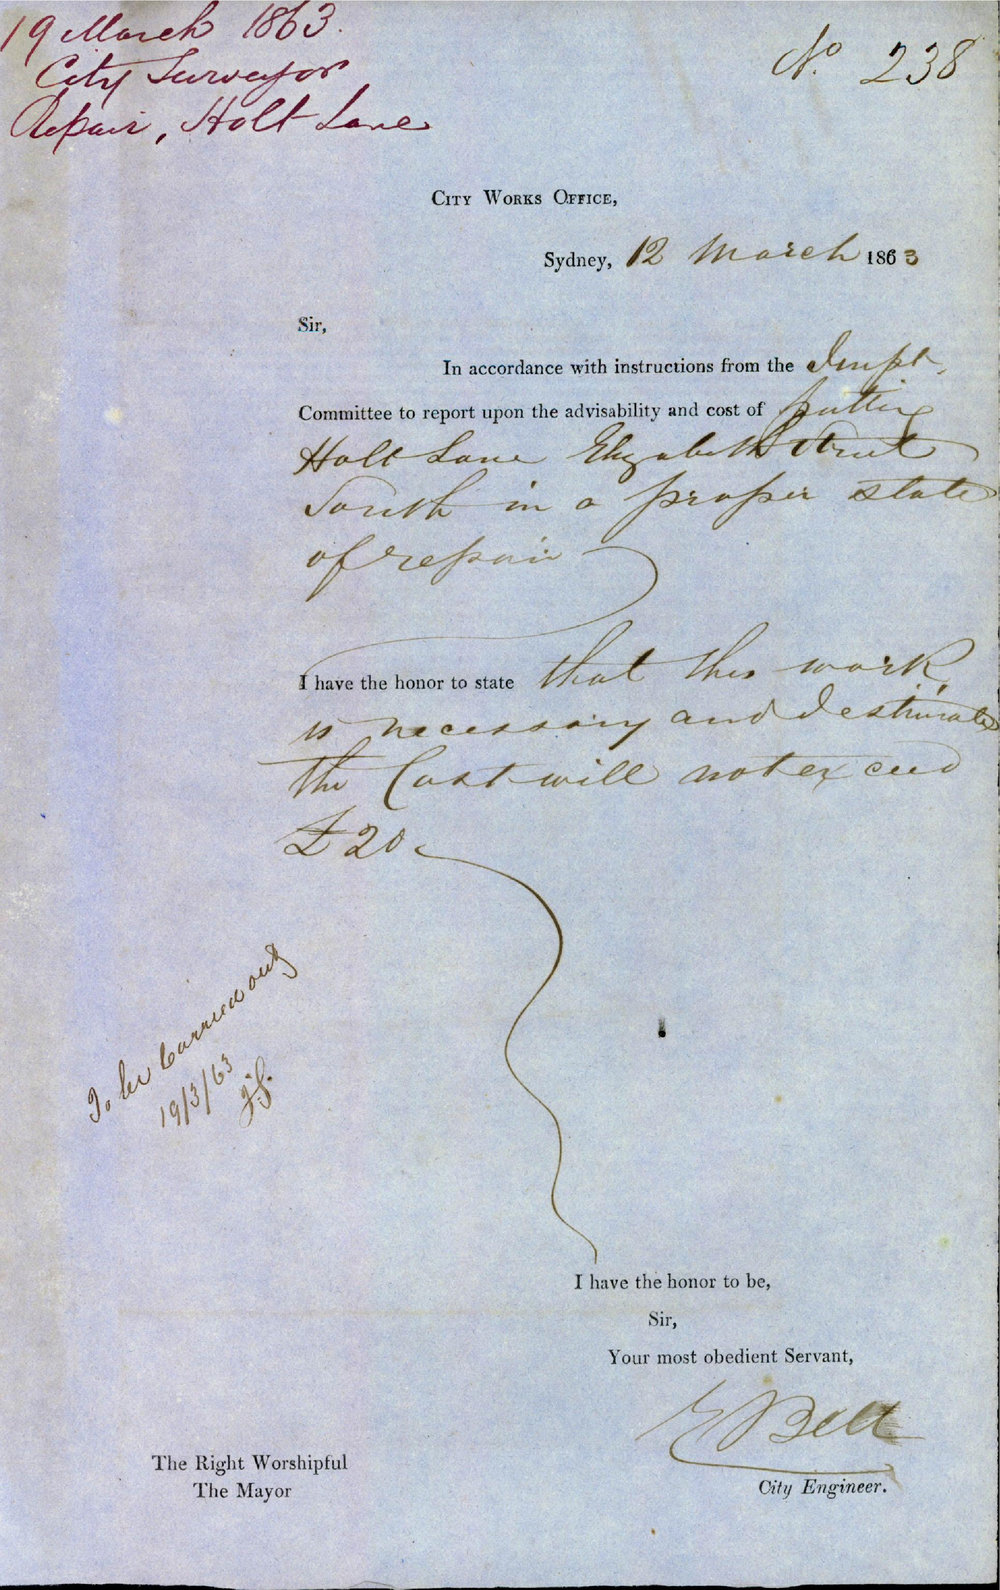 19 March 1863.
City Surveyor
Repair, Holt Lane
No. 238
City Works Office,
Sydney, 12 March 1863
Sir,
In accordance with instructions from the Impt.
Committee to report upon the advisability and cost of putting
Holt Lane Elizabeth Street
South in a proper state
of repair
I have the honor to state that this work
is necessary and I estimate
the Cost will not exceed
£20
To be Carried out
19/3/63
J.S.
I have the honor to be,
Sir,
Your most obedient Servant,
E Bell
City Engineer.
The Right Worshipful
The Mayor